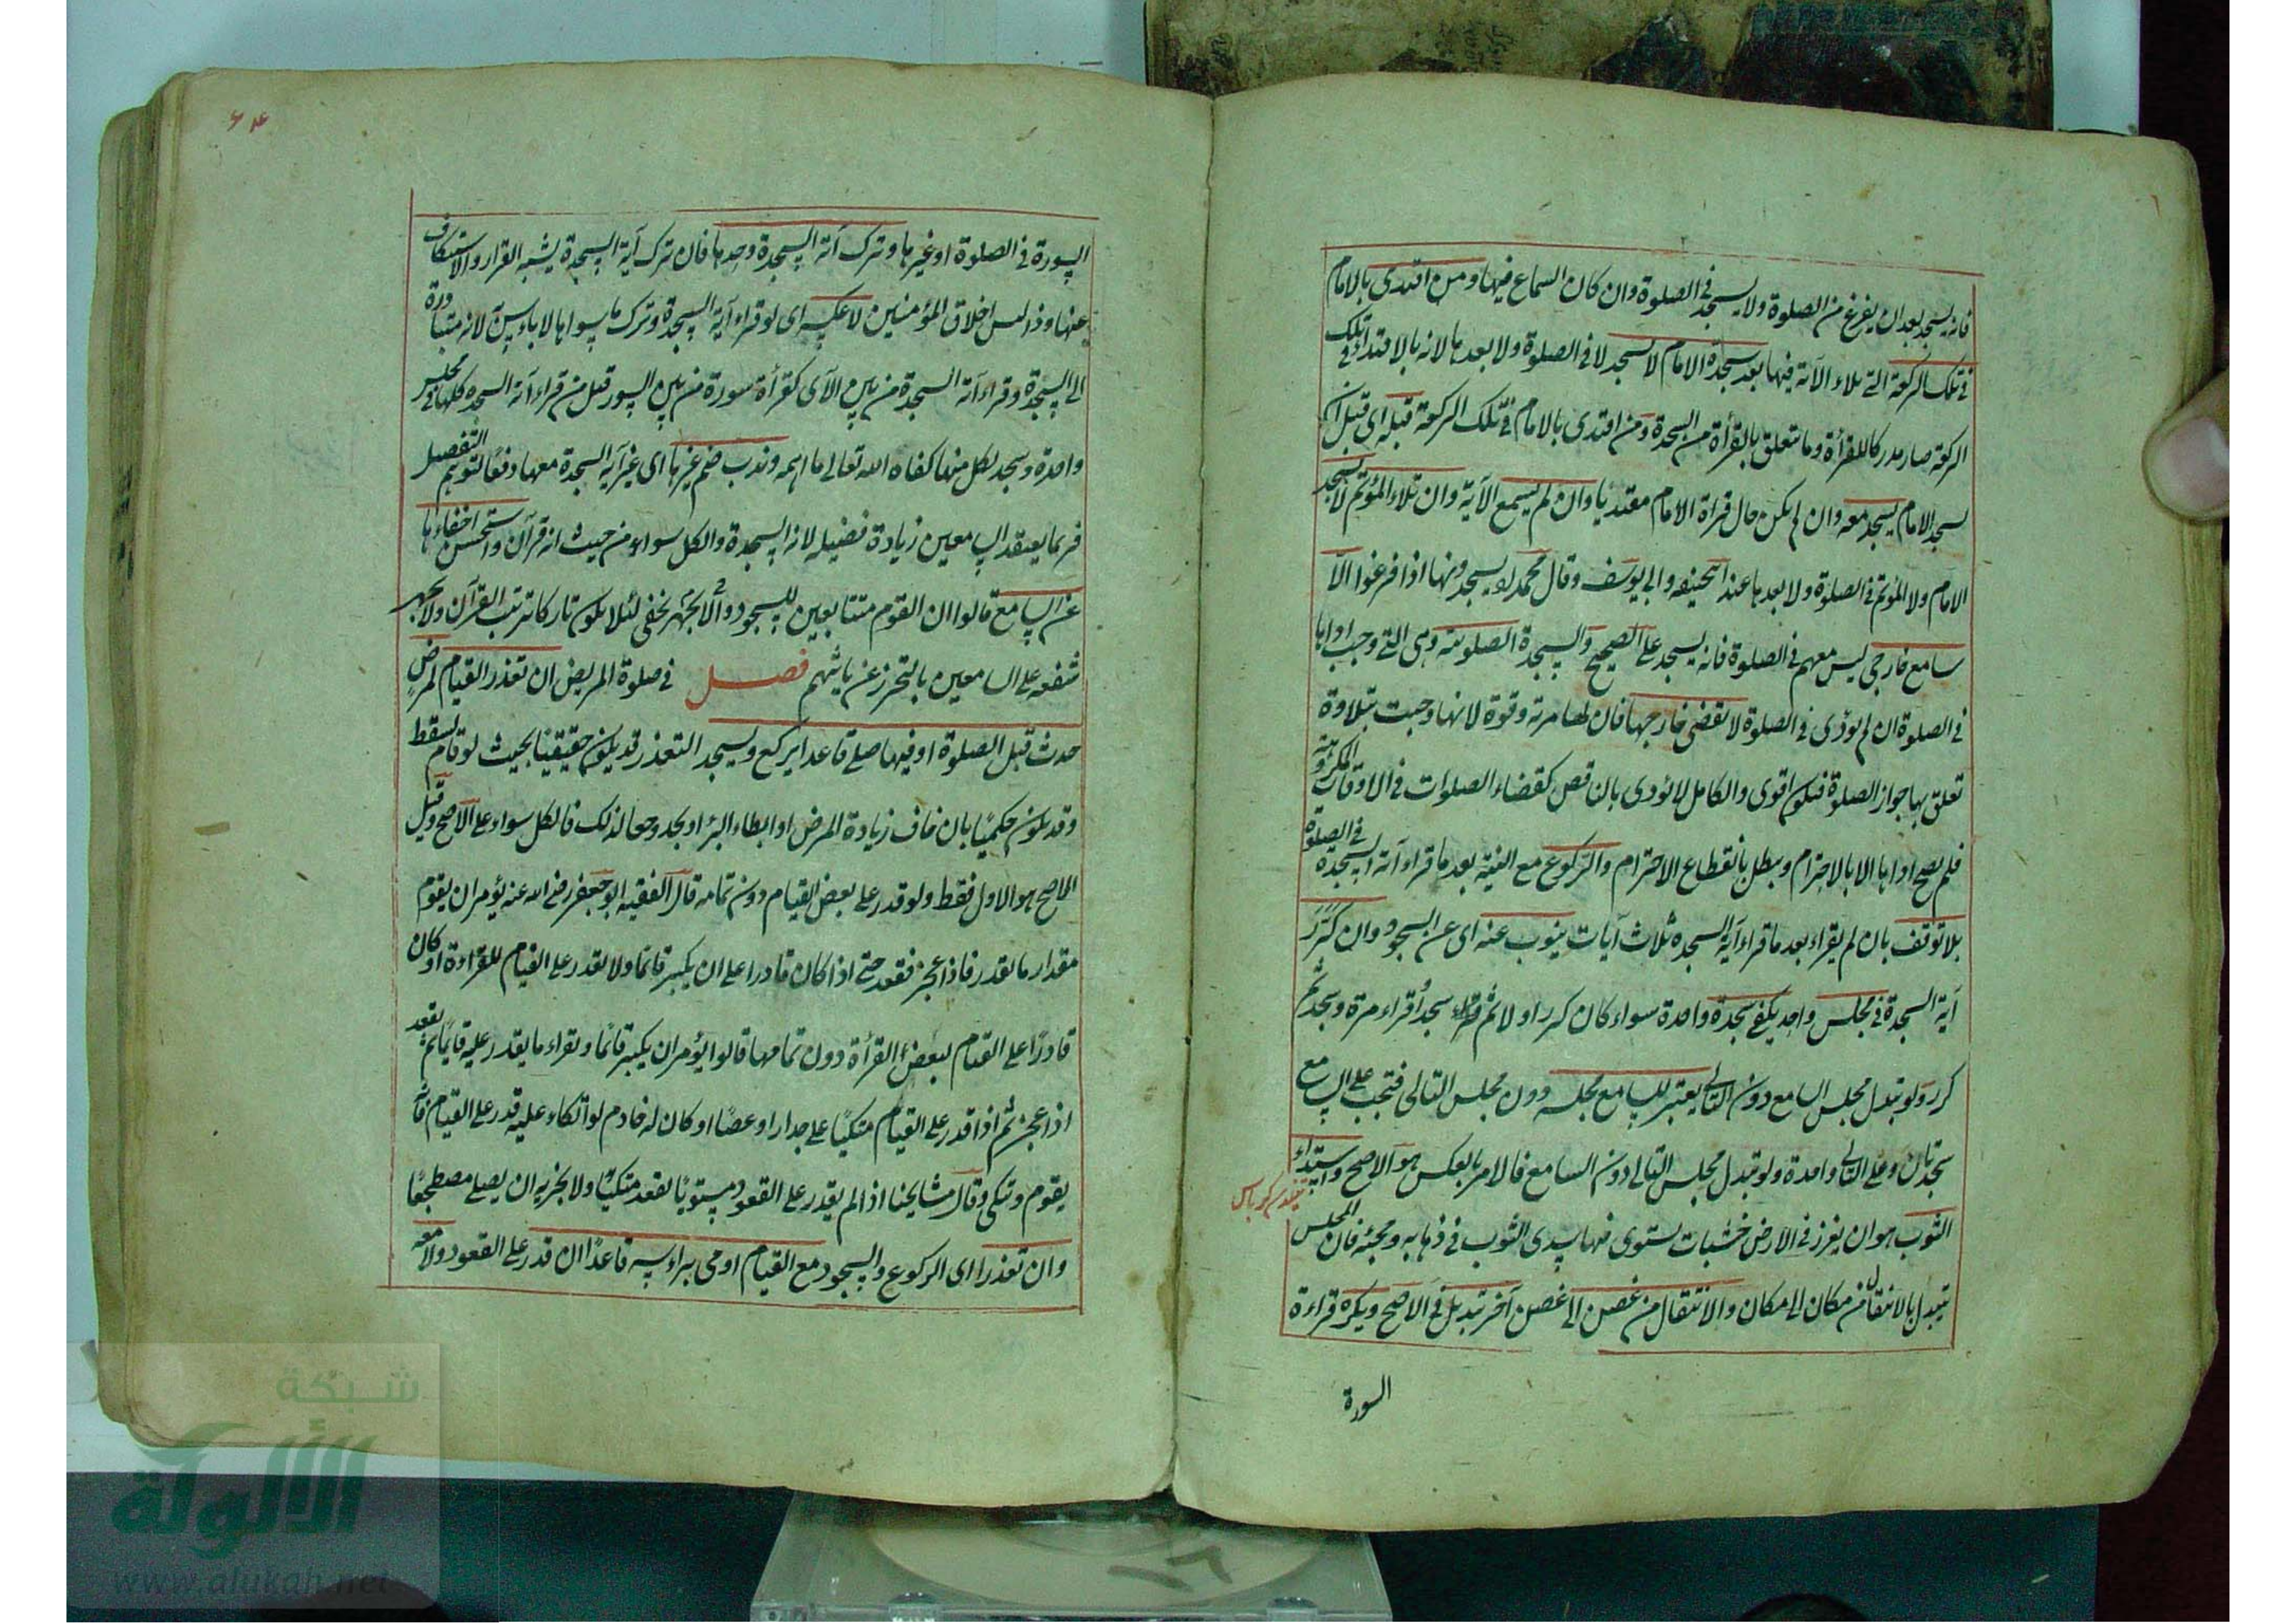 فانه يسجد بعد ان يفرغ من الصلوة ولا يسجد في الصلوة وان كان السماع فيها ومن اقتدى بالامام
في تلك الركعة التي تلاء الآية فيها بعد سجدة الامام لا يسجد لا في الصلوة ولا بعدها لانه بالاقتداء في تلك
الركعة صار مدركا للقرأة وما يتعلق بالقرأة من السجدة ومن اقتدى بالامام في تلك الركعة قبله اى قبل ان
يسجد الامام يسجد معه وان لم يكن حال قراة الامام مقتديا وان لم يسمع الآية وان تلاء المؤتم لا يسجد
الامام ولا المؤتم في الصلوة ولا بعدها عند ابيحنيفه وابي يوسف وقال محمد يسجدونها اذا فرغوا الا
سامع خارجى ليس معهم في الصلوة فانه يسجد على الصحيح والسجدة الصلوتية وهى التي وجب اداها
في الصلوة ان لم يؤدى في الصلوة لا تقضى خارجها فان لها مرتبة وقوة لانها وجبت بتلاوة
تعلق بها جواز الصلوة فيكون اقوى والكامل لا يؤدى بالناقص كقضاء الصلوات في الاوقات المكروهة
فلم يصح اداها الا بالاحترام وبطل بانقطاع الاحترام والركوع مع النية بعد ما قراء آية السجدة في الصلوة
بلا توقف بان لم يقراء بعد ما قراء آية السجده ثلاث آيات ينوب عنه اى عن السجود وان كرر
آية السجدة في مجلس واحد يكفى سجدة واحدة سواء كان كرر اولا ثم سجد او قراء مرة وسجد ثم
كرر ولو تبدل مجلس السامع دون التالى يعتبر للسامع مجلسه دون مجلس التالى فتجب على السامع
سجدتان وعلى التالى واحدة ولو تبدل مجلس التالى دون السامع فالامر بالعكس هو الاصح واستداء
الثوب هو ان يغرز في الارض خشبات يستوى فيها سدى الثوب في ذهابه ومجيئه فان المجلس
يتبدل بالانتقال من مكان الى مكان والانتقال من غصن الى غصن آخر تبديل في الاصح ويكره قراءة
السورة
٦٤
السورة في الصلوة او غيرها وترك آية السجدة وحدها فان ترك آية السجدة يشبه الفرار والاستنكاف
عنها وذا ليس اخلاق المؤمنين لا عكسه اى لو قراء آية السجدة وترك ما سواها لا باس لانه مبادرة
الى السجدة وقراءة آية السجدة من بين الآى كقرأة سورة من بين السور قيل من قراء آية السجده كلها في مجلس
واحدة وسجد لكل منها كفاه الله تعالى ما اهمه وندب ضم غيرها اى غير آية السجدة معها دفعا لتوهم التفضيل
فربما يعتقد السامعين زيادة فضيله لانه السجدة والكل سواء من حيث انه قرآن واستحسن اخفاءها
عن السامع قالوا ان القوم متتابعين للسجود والا يجهر يخفى لئلا يكون تاركا ترتيب القرآن ولا يجهر
شفعه على السامعين بالتحرز عن ياثمهم فصل في صلوة المريض ان تعذر القيام لمرض
حدث قبل الصلوة او فيها صلى قاعدا يركع ويسجد التعذر قد يكون حقيقيا بحيث لو قام لسقط
وقد يكون حكميا بان خاف زيادة المرض او ابطاء البرء او يجد وجعا لذلك فالكل سواء على الاصح وقيل
الاصح هو الاول فقط ولو قدر على بعض القيام دون تمامه قال الفقيه ابو جعفر رضى الله عنه يؤمر ان يقوم
مقدار ما يقدر فاذا عجز فقعد حتى اذا كان قادرا على ان يكبر قائما ولا يقدر على القيام للقراءة او كان
قادرا على القيام لبعض القرأة دون تمامها قالوا يؤمر ان يكبر قائما ويقراء ما يقدر عليه قايما ثم يقعد
اذا عجز ثم اذا قدر على القيام متكيا على جدار او عصا او كان له خادم لو اتكاء عليه قدر على القيام فانه
يقوم ويتكى وقال مشايخنا اذا لم يقدر على القعود مستويا يقعد متكيا ولا يجزيه ان يصلى مضطجعا
وان تعذرا اى الركوع والسجود مع القيام اومى براسه قاعدا ان قدر على القعود ولا معه
شبكة
الألوكة
www.alukah.net